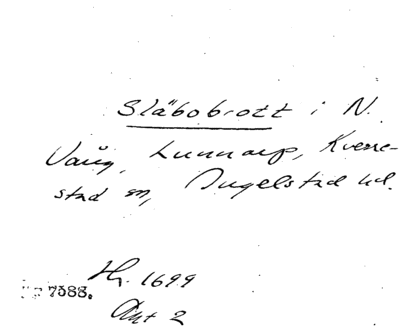 Släbobrott i N.
Vång, Lunnarp, Kverre-
stad sn, Ingelstad hd.
Hr. 1699
7388.
Akt 2